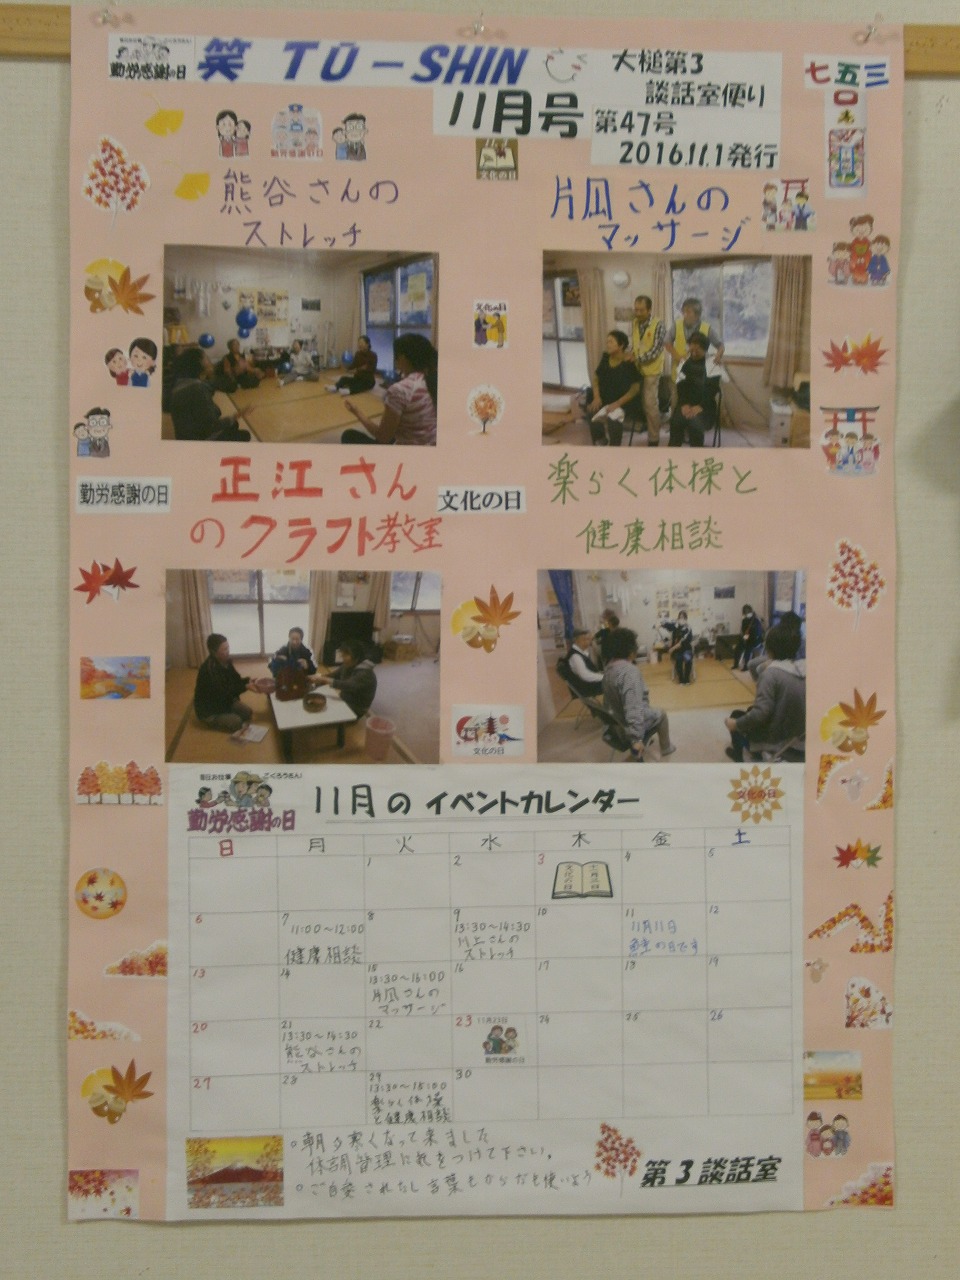 勤労感謝の日
笑 TŪ-SHIN
11月号
大槌第3
談話室便り
第47号
2016.11.1発行
七五三
勤労感謝の日
文化の日
熊谷さんの
ストレッチ
片凪さんの
マッサージ
文化の日
勤労感謝の日
文化の日
正江さん
のクラフト教室
楽らく体操と
健康相談
文化の日
毎日お仕事
ごくろうさん!
勤労感謝の日
11月のイベントカレンダー
文化の日
日 月 火 水 木 金 土
1 2 3 4 5
文化の日
十一月三日
6 7 8 9 10 11 12
11:00~12:00
健康相談
13:30~14:30
川上さんの
ストレッチ
11月11日
鮭の日です
13 14 15 16 17 18 19
13:30~16:00
片凪さんの
マッサージ
20 21 22 23 24 25 26
13:30~14:30
熊谷さんの
ストレッチ
11月23日
勤労感謝の日
27 28 29 30
13:30~15:00
楽らく体操
と健康相談
○朝夕寒くなって来ました
体調管理に気をつけて下さい。
第3談話室